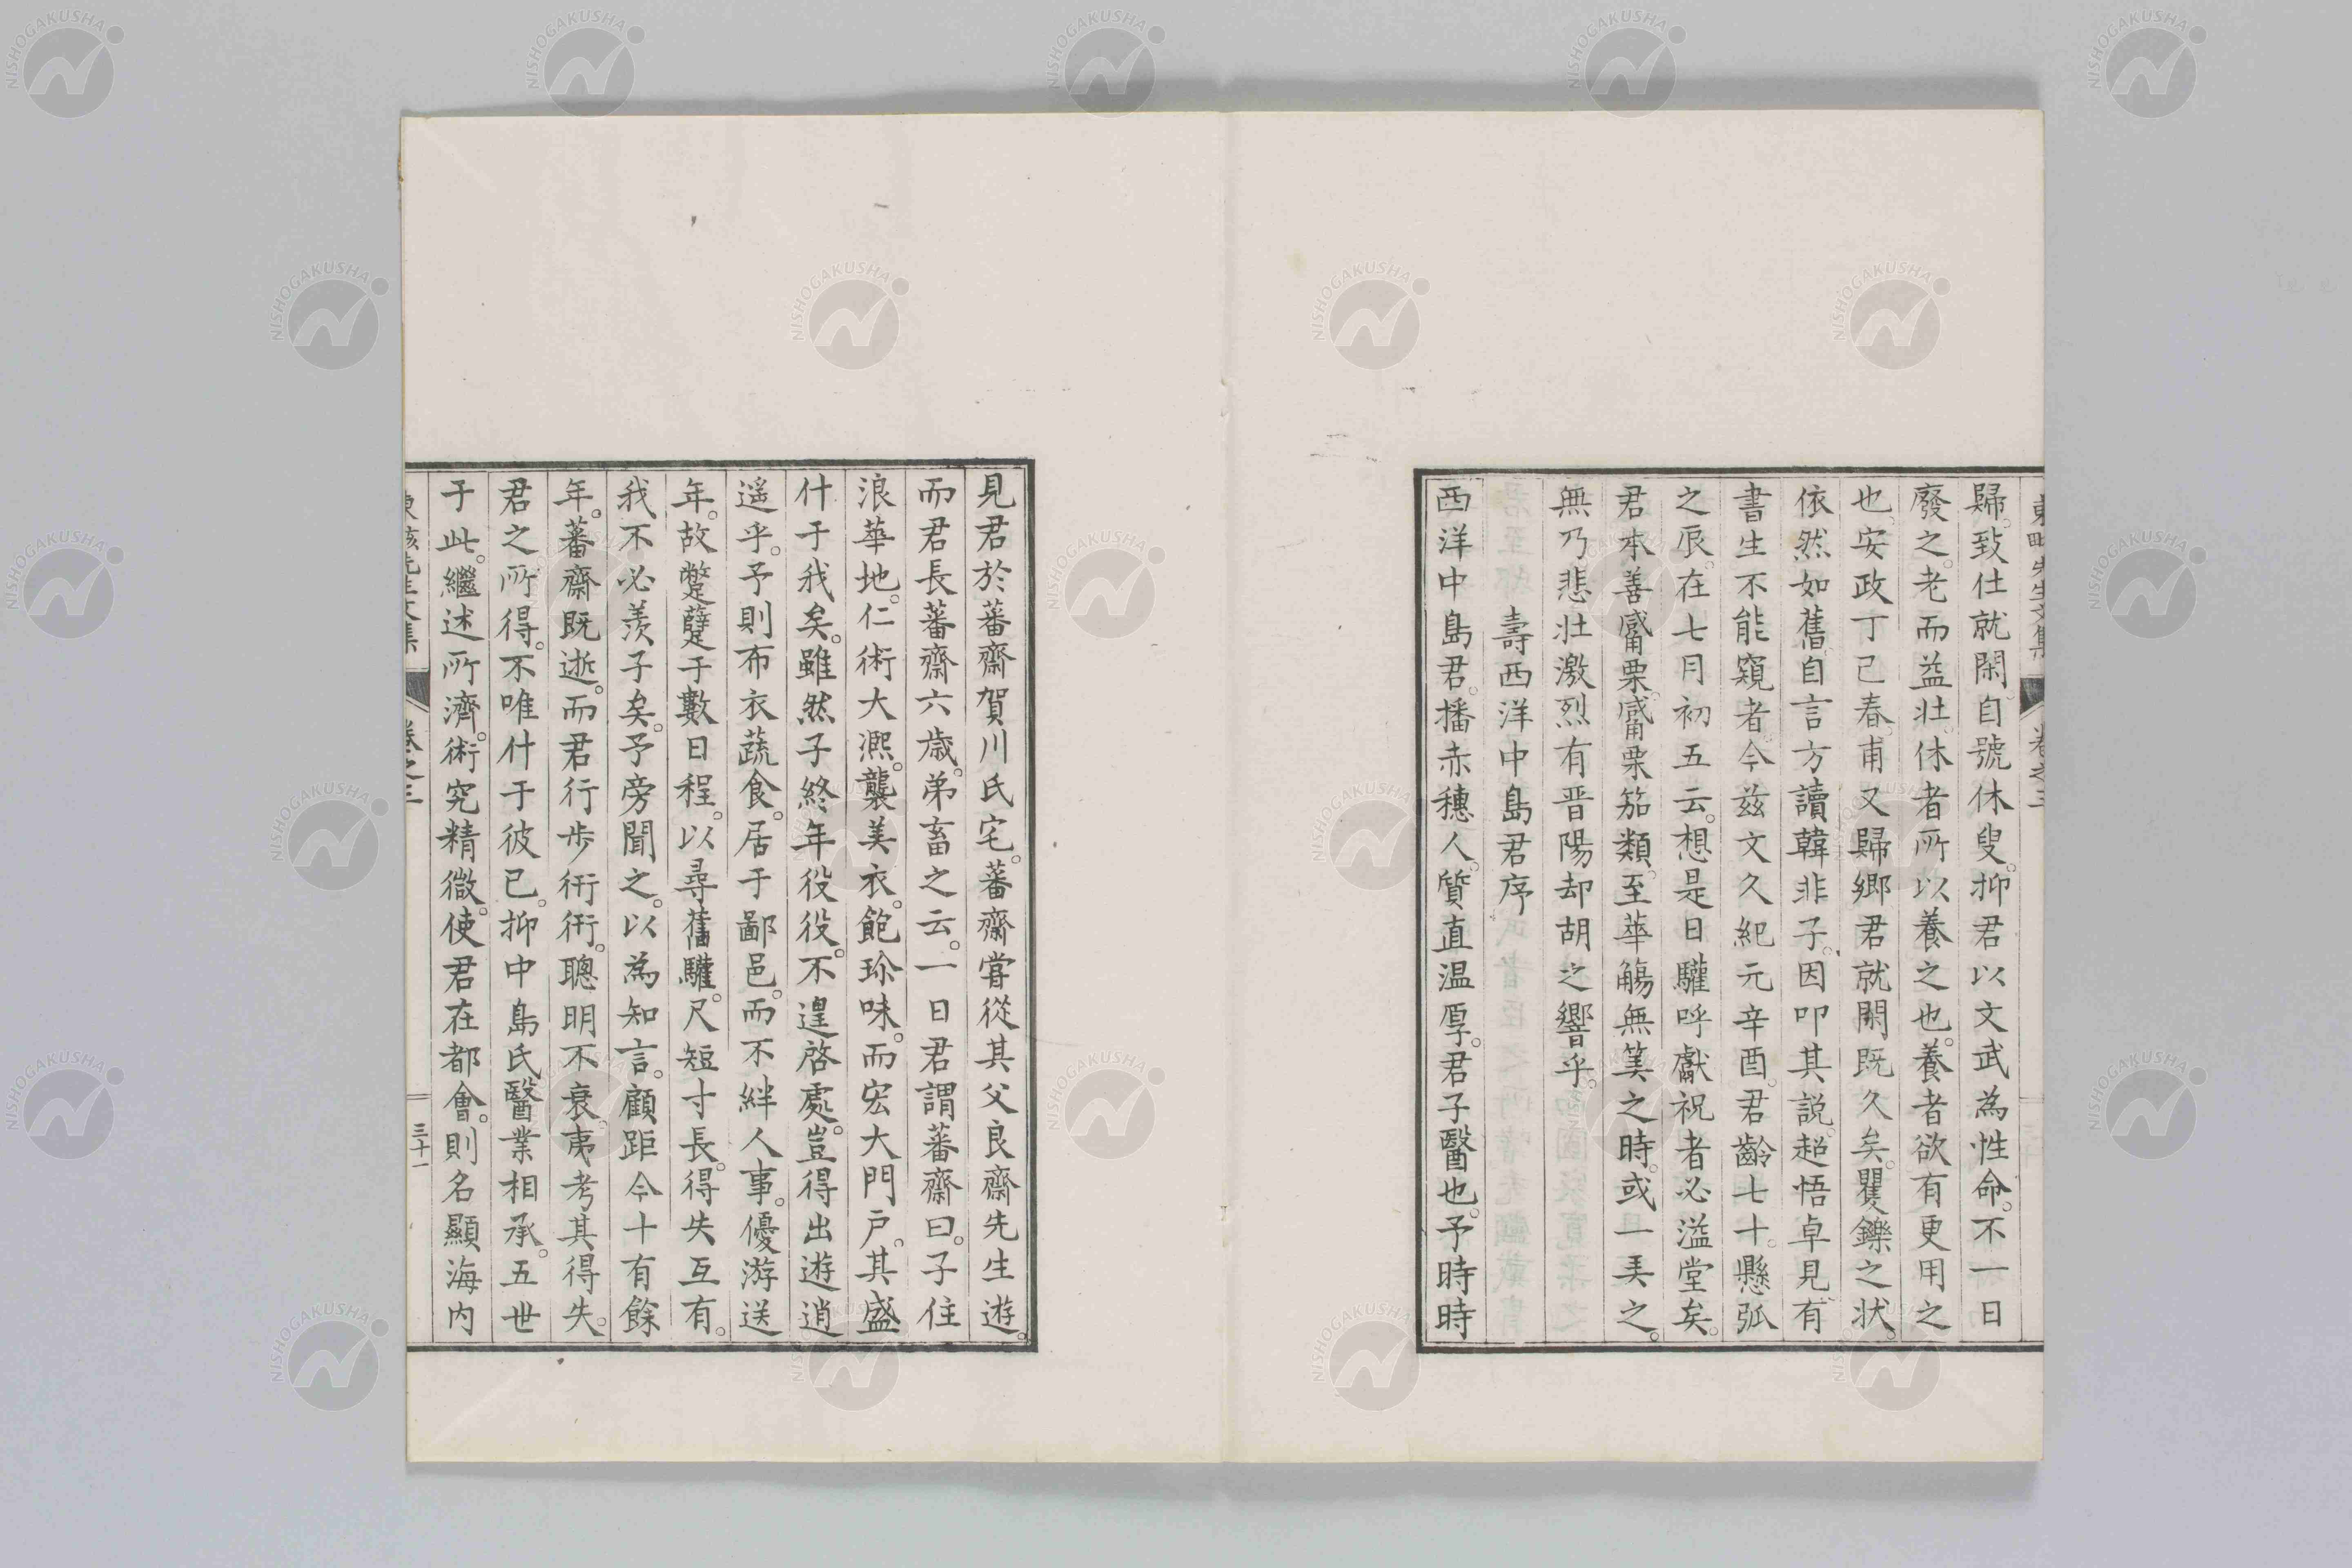 歸。致仕就閑。自號休叟。抑君以文武為性命。不一日
廢之。老而益壯。休者所以養之也。養者欲有更用之
也。安政丁巳春。甫又歸鄉。君就閑既久矣。矍鑠之状。
依然如舊。自言方讀韓非子。因叩其説。超悟卓見。有
書生不能窺者。今玆文久紀元辛酉。君齡七十。懸弧
之辰。在七月初五云。想是日驩呼獻祝者必溢堂矣。
君本善觱栗。觱栗笳類。至華觴無筭之時。或一弄之。
無乃悲壯激烈有晋陽却胡之響乎。
壽西洋中島君序
西洋中島君。播赤穗人。質直温厚。君子醫也。予時時
見君於蕃齋賀川氏宅。蕃齋嘗從其父良齋先生遊。
而君長蕃齋六歲。弟畜之云。一日君謂蕃齋曰。子住
浪華地。仁術大凞。襲美衣。飽珍味。而宏大門戸。其盛
什于我矣。雖然子終年役役。不遑啓處。豈得出遊逍
遥乎。予則布衣蔬食。居于鄙邑。而不絆人事。優游送
年。故蹩躠于數日程。以尋舊驩。尺短寸長。得失互有。
我不必羨子矣。予旁聞之。以為知言。顧距今十有餘
年。蕃齋既逝。而君行步衎衎。聰明不衰。夷考其得失。
君之所得。不唯什于彼已。抑中島氏醫業相承。五世
于此。繼述所濟。術究精微。使君在都會。則名顯海内
先生文集
卷之三
三十一